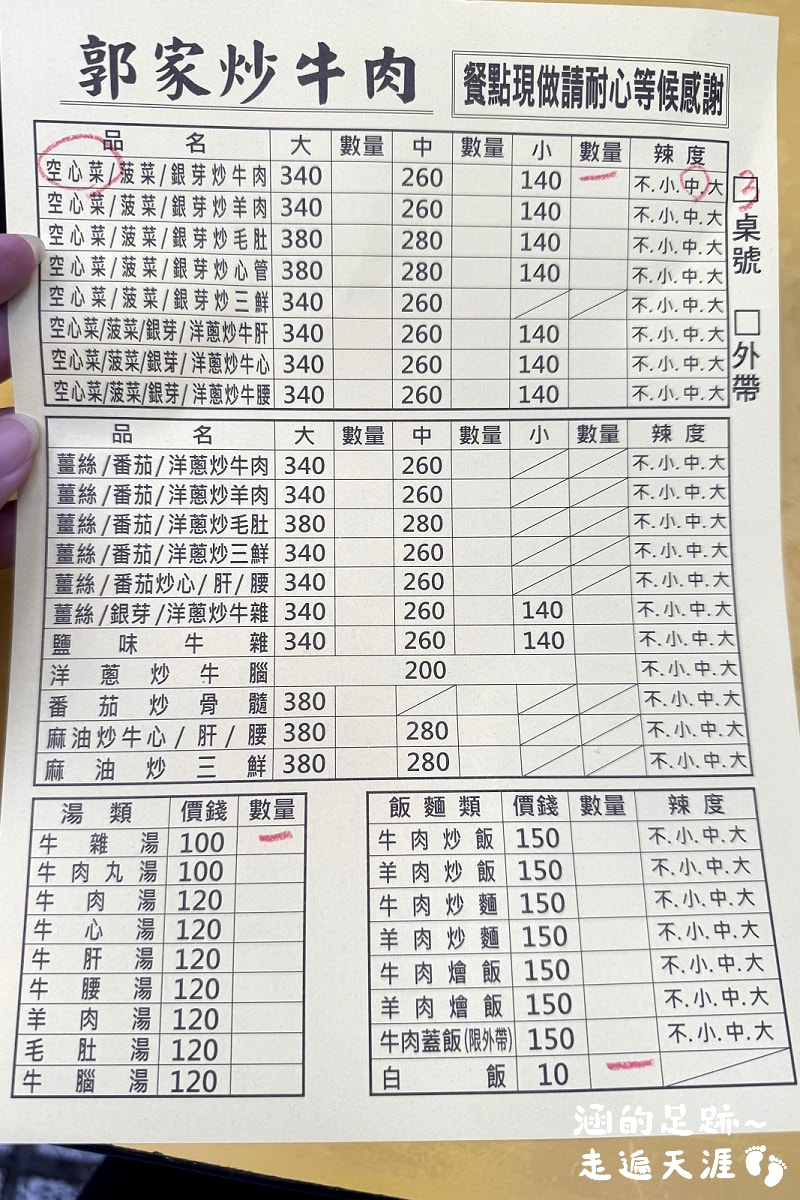 郭家炒牛肉
餐點現做請耐心等候感謝
品 名 大 數量 中 數量 小 數量 辣 度
空心菜/菠菜/銀芽炒牛肉 340 260 140 一 不.小.中.大
空心菜/菠菜/銀芽炒羊肉 340 260 140 不.小.中.大
空心菜/菠菜/銀芽炒毛肚 380 280 140 不.小.中.大
空心菜/菠菜/銀芽炒心管 380 280 140 不.小.中.大
空心菜/菠菜/銀芽炒三鮮 340 260 不.小.中.大
空心菜/菠菜/銀芽/洋蔥炒牛肝 340 260 140 不.小.中.大
空心菜/菠菜/銀芽/洋蔥炒牛心 340 260 140 不.小.中.大
空心菜/菠菜/銀芽/洋蔥炒牛腰 340 260 140 不.小.中.大
□桌號
□外帶
品 名 大 數量 中 數量 小 數量 辣 度
薑絲/番茄/洋蔥炒牛肉 340 260 不.小.中.大
薑絲/番茄/洋蔥炒羊肉 340 260 不.小.中.大
薑絲/番茄/洋蔥炒毛肚 380 280 不.小.中.大
薑絲/番茄/洋蔥炒三鮮 340 260 不.小.中.大
薑絲/番茄炒心/肝/腰 340 260 不.小.中.大
薑絲/銀芽/洋蔥炒牛雜 340 260 140 不.小.中.大
鹽味牛雜 340 260 140 不.小.中.大
洋蔥炒牛腦 200 不.小.中.大
番茄炒骨髓 380 不.小.中.大
麻油炒牛心/肝/腰 380 280 不.小.中.大
麻油炒三鮮 380 280 不.小.中.大
湯類 價錢 數量
牛雜湯 100 一
牛肉丸湯 100
牛肉湯 120
牛心湯 120
牛肝湯 120
牛腰湯 120
羊肉湯 120
毛肚湯 120
牛腦湯 120
飯麵類 價錢 數量 辣度
牛肉炒飯 150 不.小.中.大
羊肉炒飯 150 不.小.中.大
牛肉炒麵 150 不.小.中.大
羊肉炒麵 150 不.小.中.大
牛肉燴飯 150 不.小.中.大
羊肉燴飯 150 不.小.中.大
牛肉蓋飯(限外帶) 150 不.小.中.大
白飯 10 一
涵的足跡~
走遍天涯